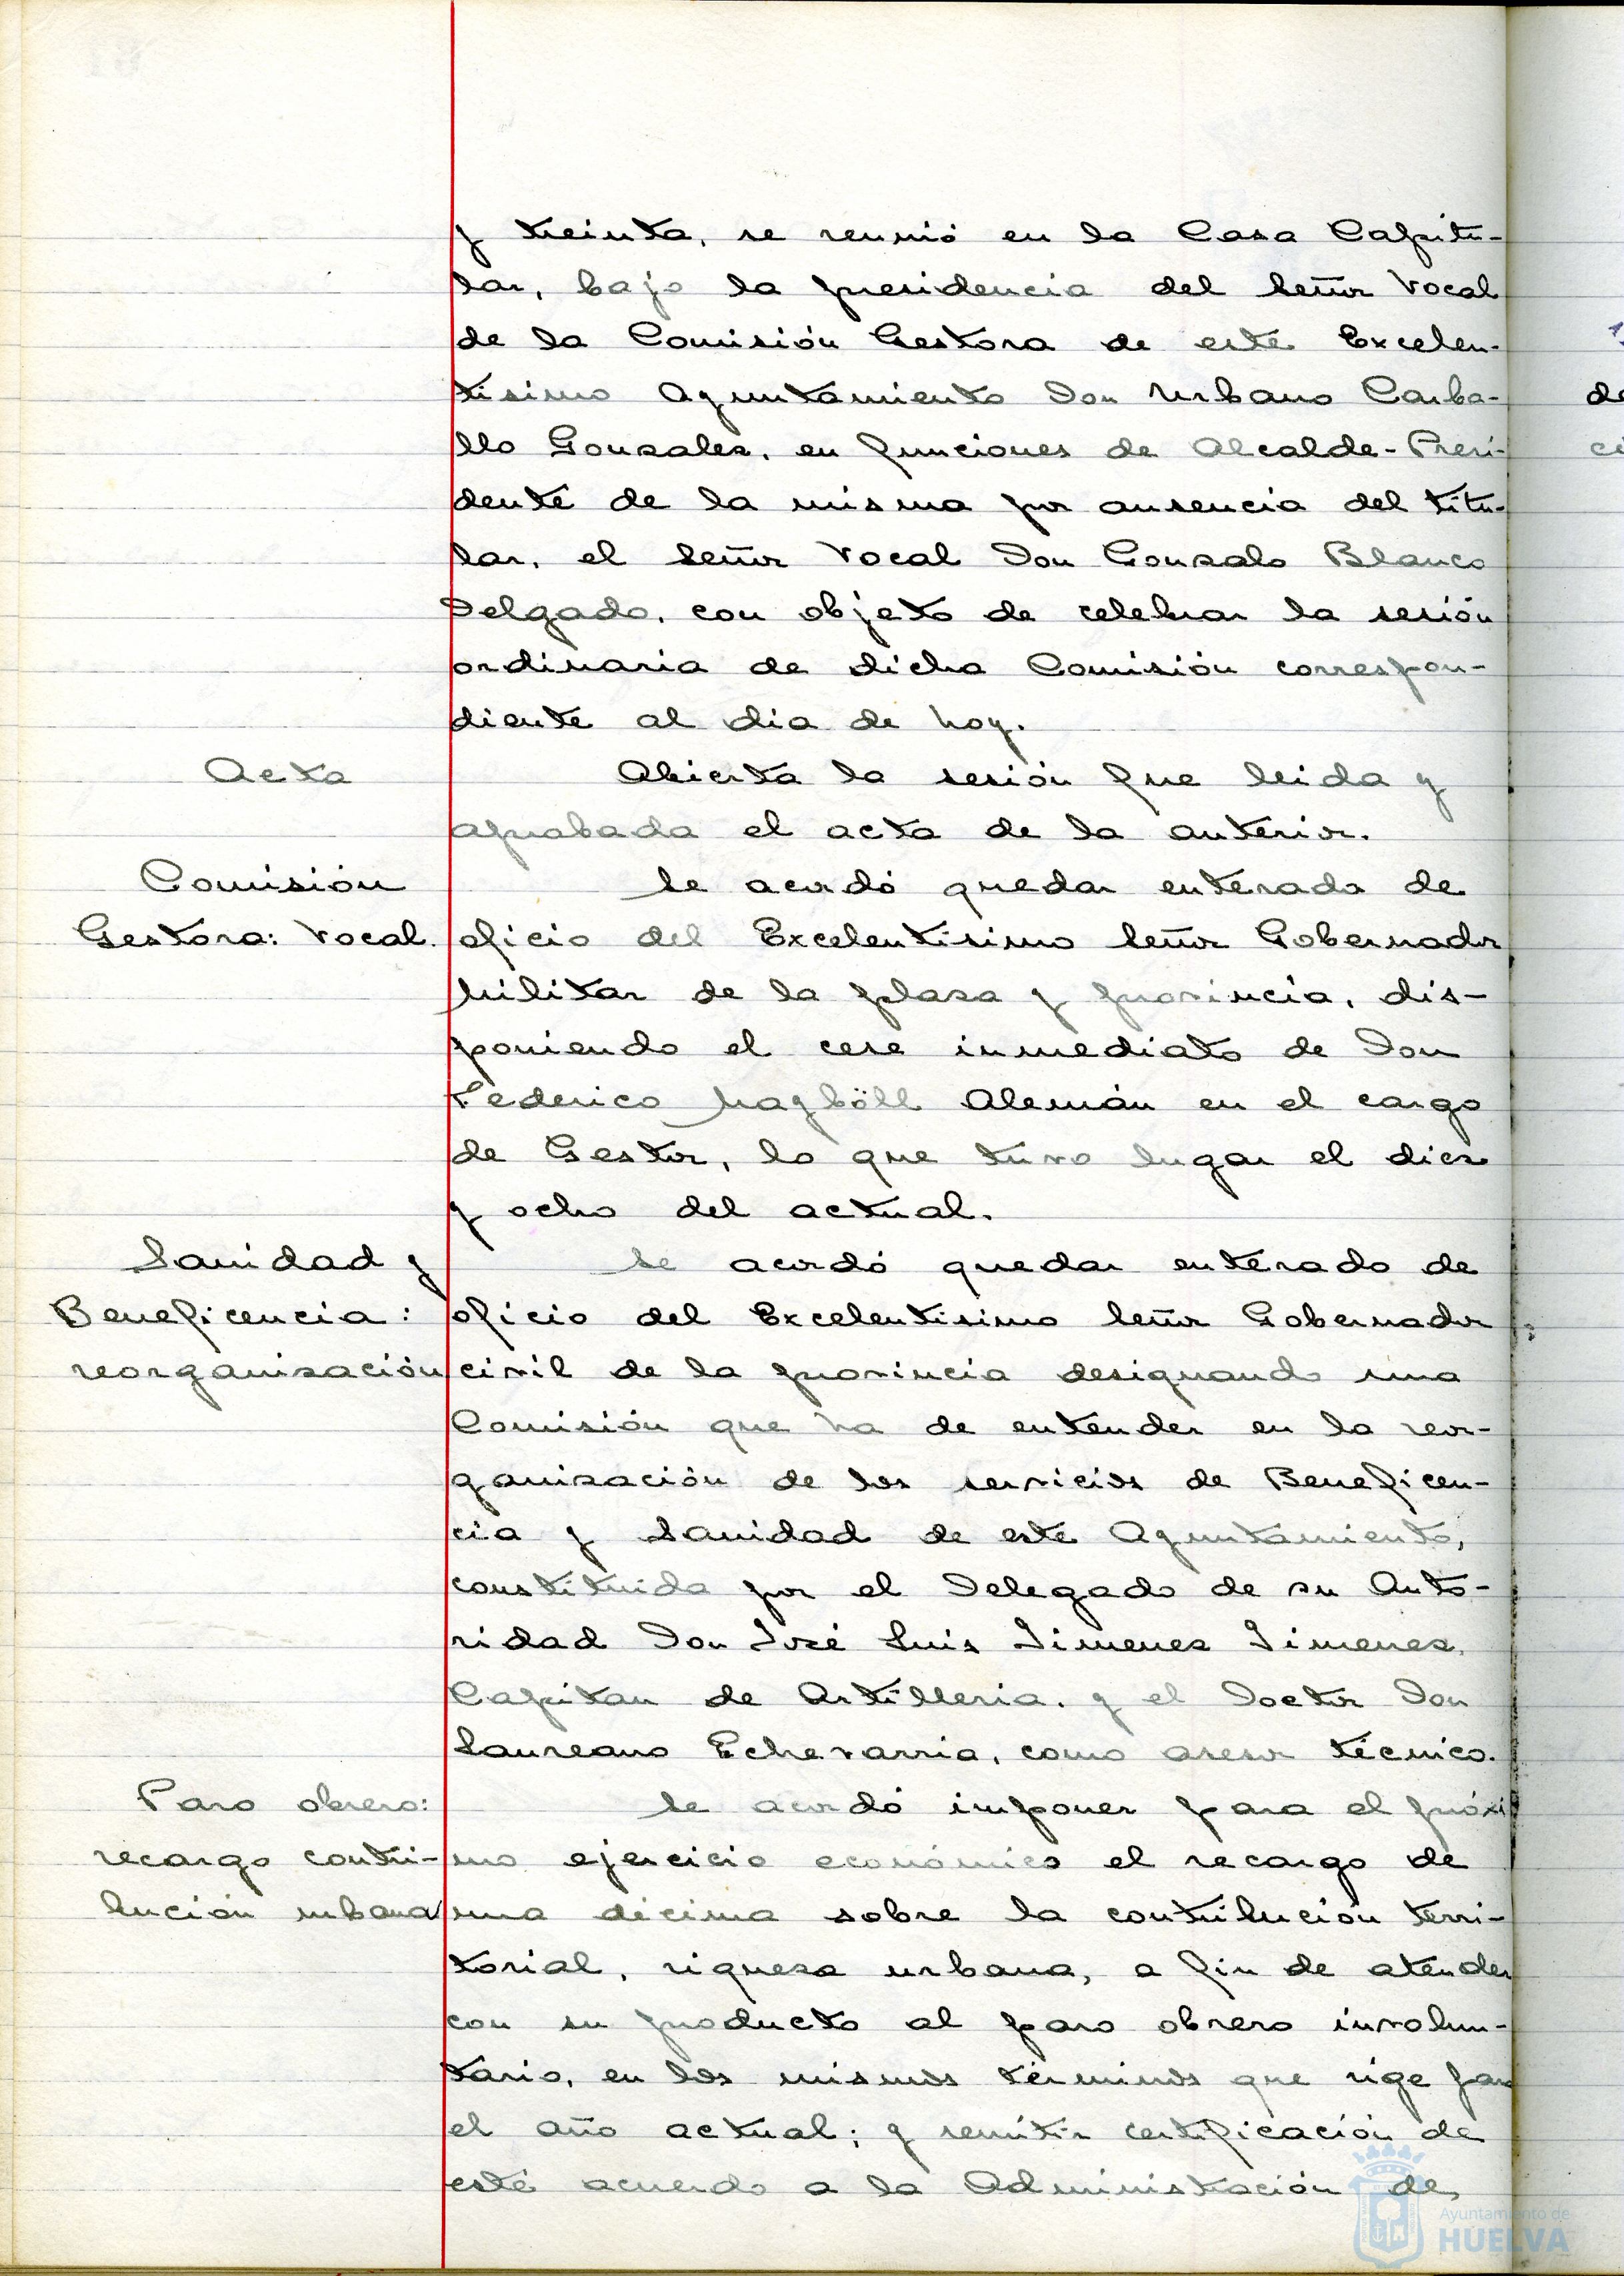 y treinta, se reunió en la Casa Capitu-
lar, bajo la presidencia del Señor Vocal
de la Comisión Gestora de este Excelen-
tisimo Ayuntamiento Don Urbano Carba-
llo Gonzalez, en funciones de Alcalde-Presi-
dente de la misma por ausencia del titu-
lar, el Señor Vocal Don Gonzalo Blanco
Delgado, con objeto de celebrar la sesión
ordinaria de dicha Comisión correspon-
diente al dia de hoy.
Acta
Abierta la sesión fue leida y
aprobada el acta de la anterior.
Comisión
Gestora: Vocal.
Se acordó quedar enterada de
oficio del Excelentisimo Señor Gobernador
Militar de la plaza y provincia, dis-
poniendo el cese inmediato de Don
Federico Mayböll Alemán en el cargo
de Gestor, lo que tuvo lugar el diez
y ocho del actual.
Sanidad y
Beneficencia:
reorganización
Se acordó quedar enterado de
oficio del Excelentisimo Señor Gobernador
civil de la provincia designando una
Comisión que ha de entender en la reor-
ganización de los servicios de Beneficen-
cia y Sanidad de este Ayuntamiento,
constituida por el Delegado de su Auto-
ridad Don José Luis Jimenez Jimenez,
Capitan de Artilleria, y el Doctor Don
Laureano Echevarria, como asesor técnico.
Paro obrero:
recargo contri-
bución urbana
Se acordó imponer para el próxi
mo ejercicio económico el recargo de
una décima sobre la contribución terri-
torial, riqueza urbana, a fin de atender
con su producto al paro obrero involun-
tario, en los mismos términos que rige para
el año actual; y remitir certificación de
este acuerdo a la Administración de
de
ci
Ayuntamiento de
HUELVA